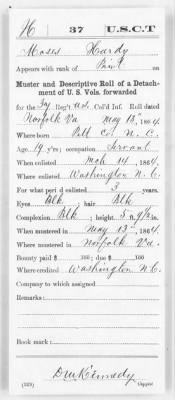 H 37 U.S.C.T
Moses Hardy
Appears with rank of Pvt
Muster and Descriptive Roll of a Detach-
ment of U. S. Vols. forwarded
for the 37 Reg't U.S. Col'd Inf. Roll dated
Norfolk Va May 13, 1864
Where born Pitt Co. N. C.
Age 19 y'rs; occupation Servant
When enlisted Mch 14, 1864
Where enlisted Washington N.C.
For what period enlisted 3 years.
Eyes Blk; hair Blk
Complexion Blk; height 5 ft. 9½ in.
When mustered in May 13, 1864
Where mustered in Norfolk Va.
Bounty paid $ 100; due $ 100
Where credited Washington N.C.
Company to which assigned
Remarks:
Book mark:
Copyist